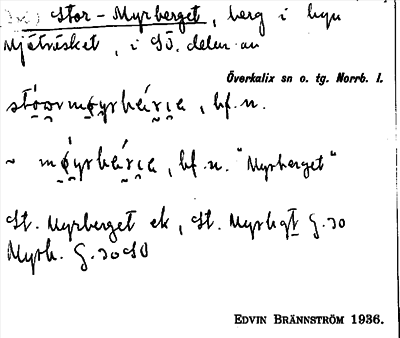 Stor-Myrberget, berg i byn
Mjöträsket, i SÖ. delen av
Överkalix sn o. tg. Norrb. l.
stóormýrbárıe, bf. n.
~ mýrbárıe, bf. n. "Myrberget"
St. Myrberget ek, St. Myrbgt G.30
Myrb. G.30 SO
EDVIN BRÄNNSTRÖM 1936.